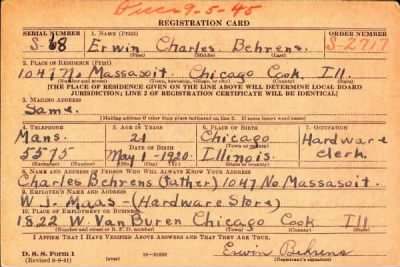 Disc 9-5-45
REGISTRATION CARD
SERIAL NUMBER 1. NAME (Print) ORDER NUMBER
S-68 Erwin Charles Behrens. S-2717
(First) (Middle) (Last)
2. PLACE OF RESIDENCE (Print)
1047 No Massasoit Chicago Cook Ill.
(Number and street) (Town, township, village, or city) (County) (State)
[THE PLACE OF RESIDENCE GIVEN ON THE LINE ABOVE WILL DETERMINE LOCAL BOARD
JURISDICTION; LINE 2 OF REGISTRATION CERTIFICATE WILL BE IDENTICAL]
3. MAILING ADDRESS
Same.
[Mailing address if other than place indicated on line 2. If same insert word same]
4. TELEPHONE 5. AGE IN YEARS 6. PLACE OF BIRTH 7. OCCUPATION
Mans. 21 Chicago Hardware
DATE OF BIRTH (Town or county)
5575 May 1-1920. Illinois. Clerk.
(Exchange) (Number) (Mo.) (Day) (Yr.) (State or country)
8. NAME AND ADDRESS OF PERSON WHO WILL ALWAYS KNOW YOUR ADDRESS
Charles Behrens (father) 1047 No Massasoit.
9. EMPLOYER'S NAME AND ADDRESS
W. J. Maas - (Hardware Store)
10. PLACE OF EMPLOYMENT OR BUSINESS
1822 W. Van Buren Chicago Cook Ill
(Number and street or R. F. D. number) (Town) (County) (State)
I AFFIRM THAT I HAVE VERIFIED ABOVE ANSWERS AND THAT THEY ARE TRUE.
Erwin Behrens
D. S. S. Form 1
(Revised 6-9-41) (Registrant's signature)